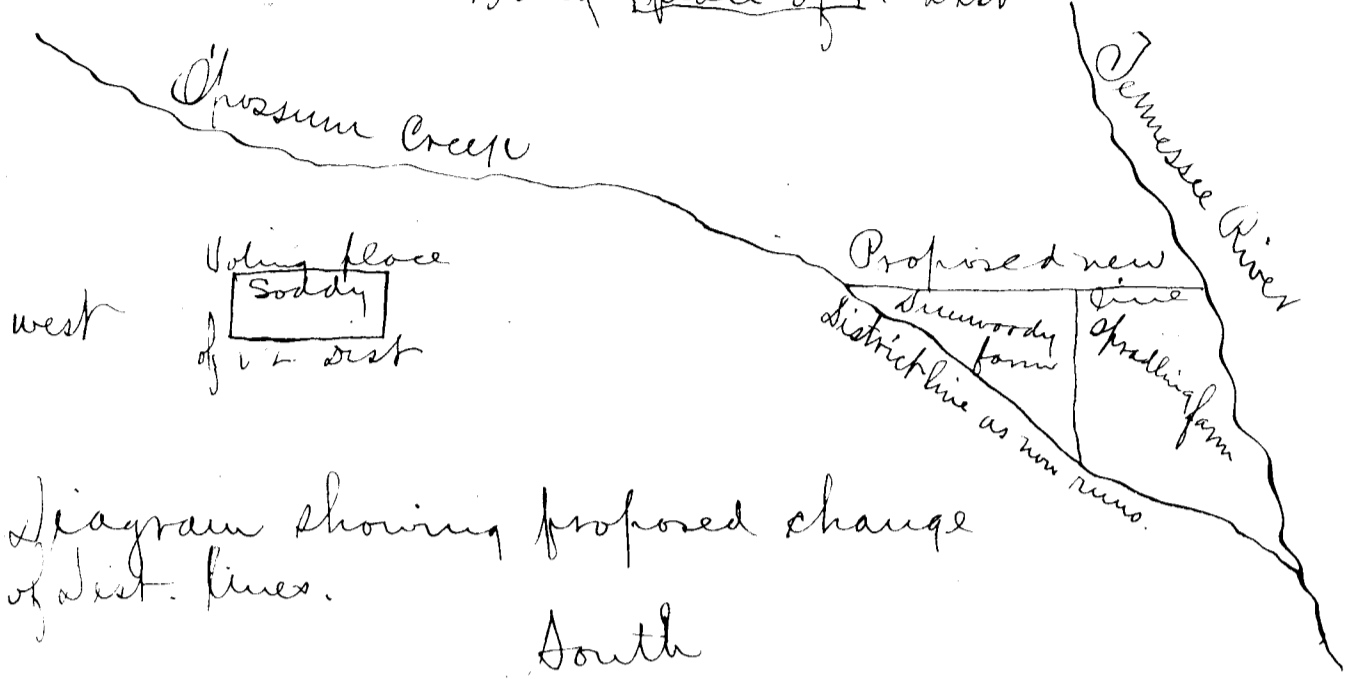 place of
Opossum Creek
Tennessee River
Voting place
Soddy
of Dist
west
Proposed new
line
Dunwoody
farm
Spradling farm
District line as now runs.
Diagram showing proposed change
of Dist. lines.
South